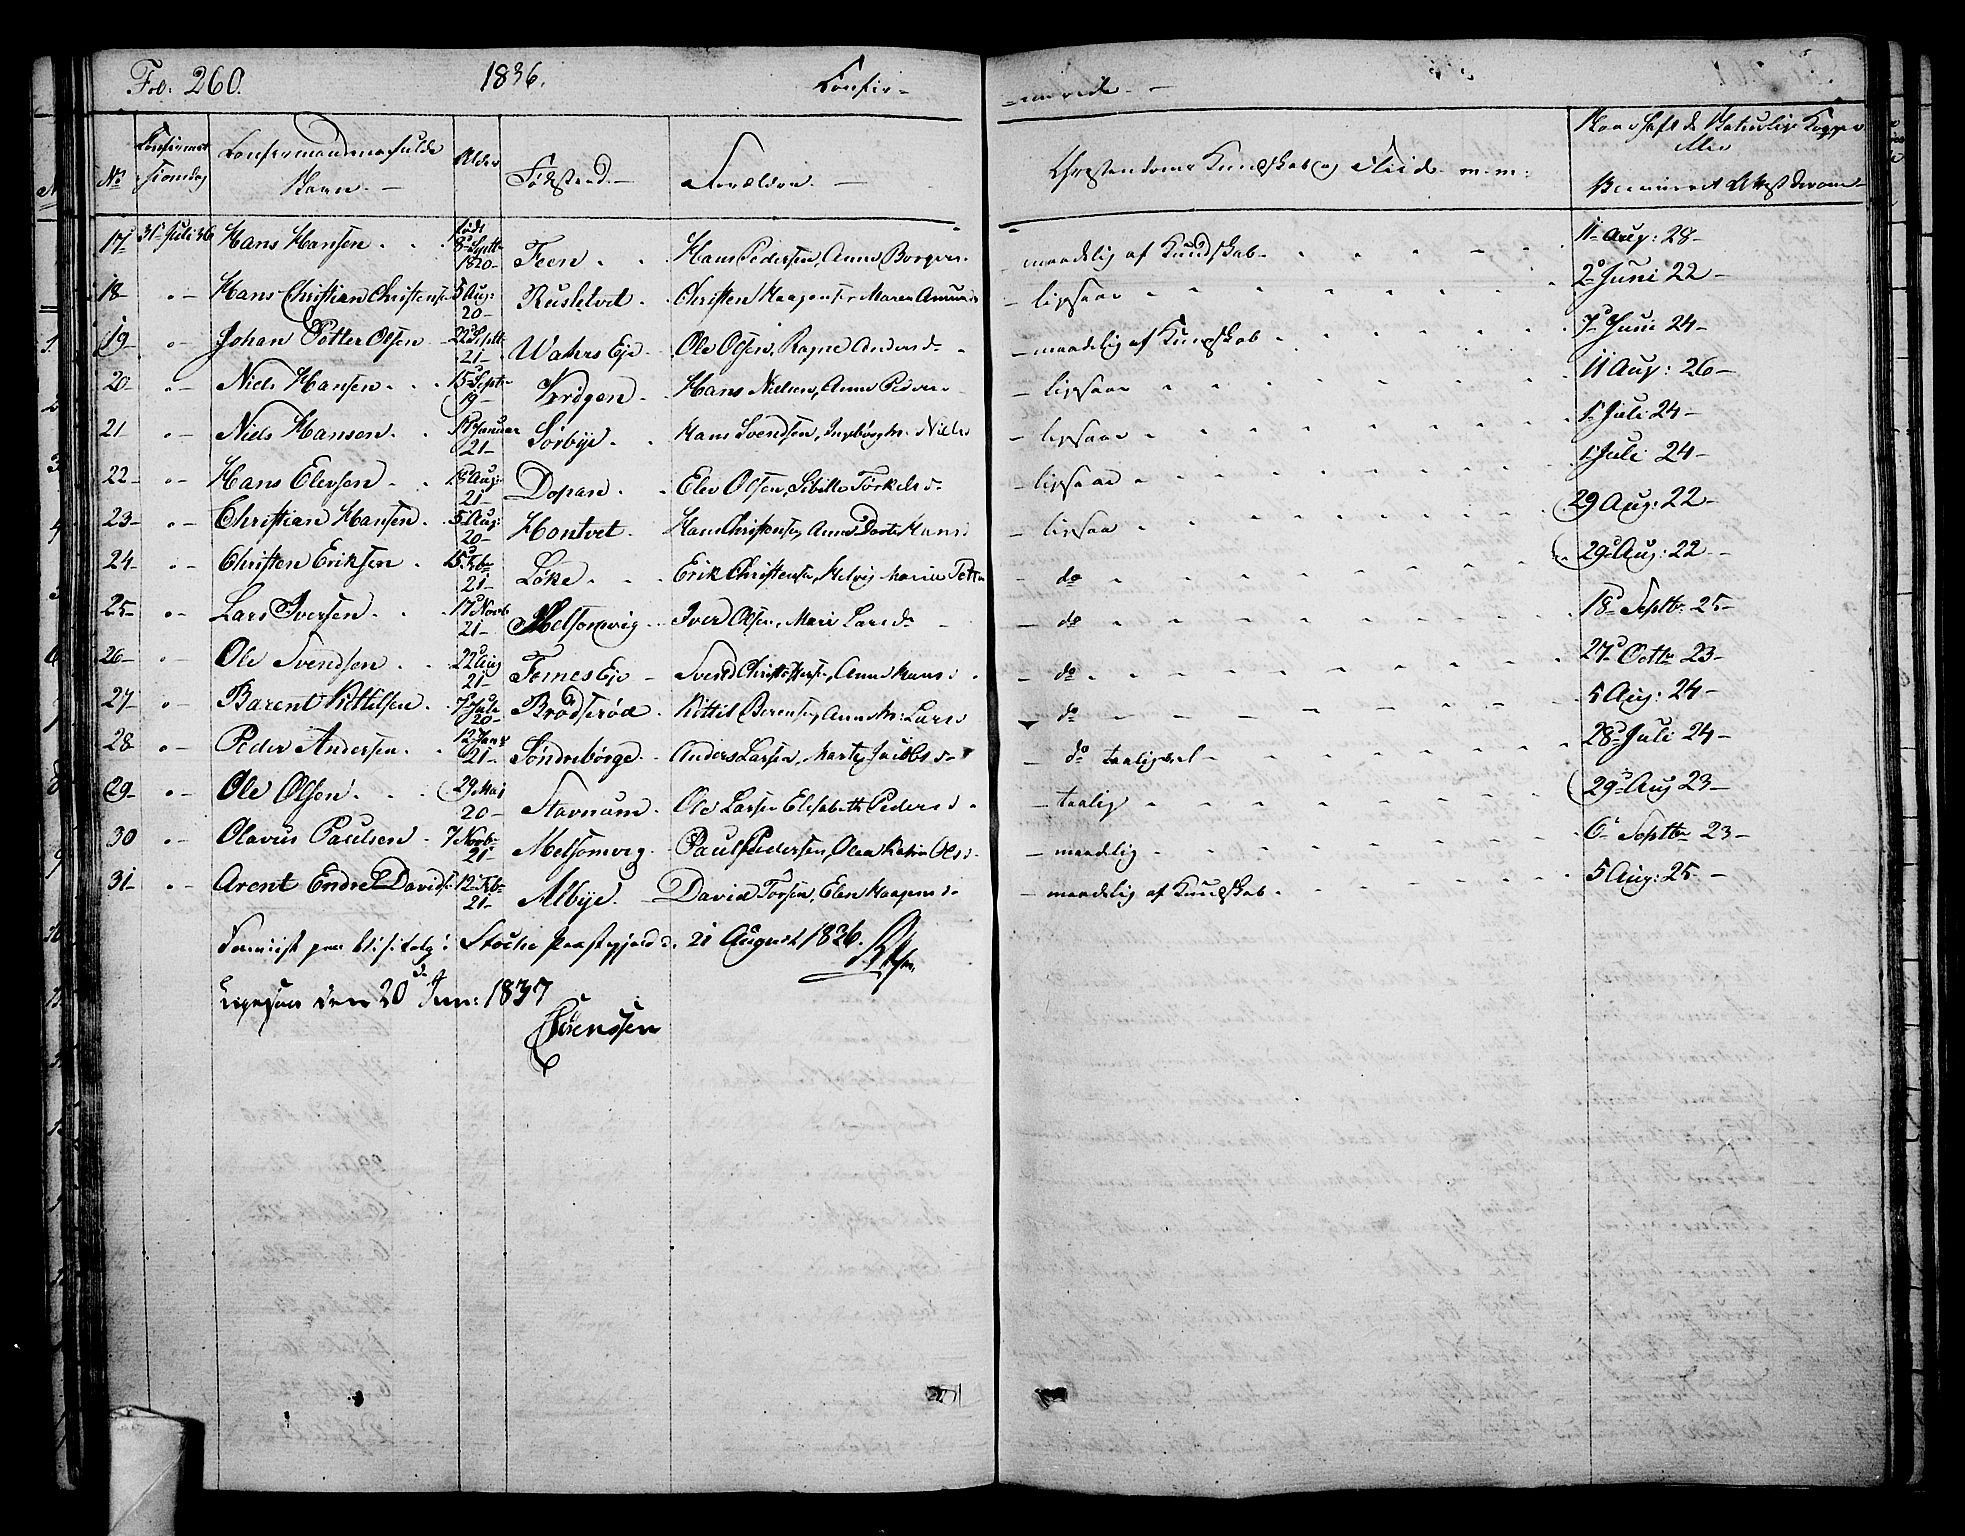 Fol: 260. 1836. Confir-
-merede. -
No Confirmert Sondag Confirmandernes fulde Navn. - Alder Födested. - Forældre. - Christendoms Kundskab og Flid m.m: Naar havt de Naturlige Kopper eller Vaccineret Attest derom
17- 31 Juli 36 Hans Hansen födt 8de Septb 1820- Feen Hans Pedersen, Anne Borgers - maadelig af Kundskab - 11 Aug: 28-
18- " - Hans Christian Christensen 5 Aug: 20- Rusletvet Christen Haagensen Maren Amunds - ligesaa 2 Juni 22-
19- " - Johan Petter Olsen 22 Septb 21- Waters Eje Ole Olsen, Ragne Andersd - maadelig af Kundskab 7 Juni 24-
20- " - Niels Hansen 15 Septb 19- Hans Nielsen, Anne Peders - ligesaa 11 Aug: 26-
21 " - Niels Hansen. 17 Januar 21- Sörbye. Hans Svendsen, Ingeborg Niels - ligesaa 1 Juli 24-
22- " - Hans Elevsen 18 Aug: 21- Dopan. Elev Olsen, Sibille Törkelsd - ligesaa 1 Juli 24-
23- " - Christian Hansen 5 Aug: 20- Hontvet. Hans Christensen, Anne Dorte Hans - ligesaa 29 Aug: 22-
24- " - Christen Eriksen 15 Feb 21- Löke Erik Christensen, Helvig Maria Petter - do 29 Aug: 22-
25- " - Lars Iversen 17 Novb 21- Melsomvig Iver Olsen, Mari Larsd - do 18 Septb 25-
26- " - Ole Svendsen 22 Aug 21- Fornes Eje - Svend Christophersen, Anne Hans - do 27 Octb 23-
27- " - Barent Kittilsen 7 Jule 20- Brödseröd Kittil Berentsen, Anne Lars - do 5 Aug: 24-
28- " - Peder Andersen. 12 Janr 21- Söndrebörge. Anders Larsen, Marte Jacobs - do taaligvel 28 Juli 24-
29- " - Ole Olsen 29 Maj 20- Stavnum. Ole Larsen Elisabeth Peders - taalig 29 Aug 23-
30 " - Olavus Paulsen 7 Novb 21- Melsomvig. Paul Pedersen, Olea Katrin Ols - maadelig 6 Septb 23-
31- " - Arent Endre Davids: 12 Feb 21- Albye. David Torsen, Elen Haagens - maadelig af Kundskab 5 Aug: 25-
Foreviist paa Visitats i Stocke Præstegjeld d. 21 August 1836.
Ligesaa den 20 Jun: 1837
Sörenssen